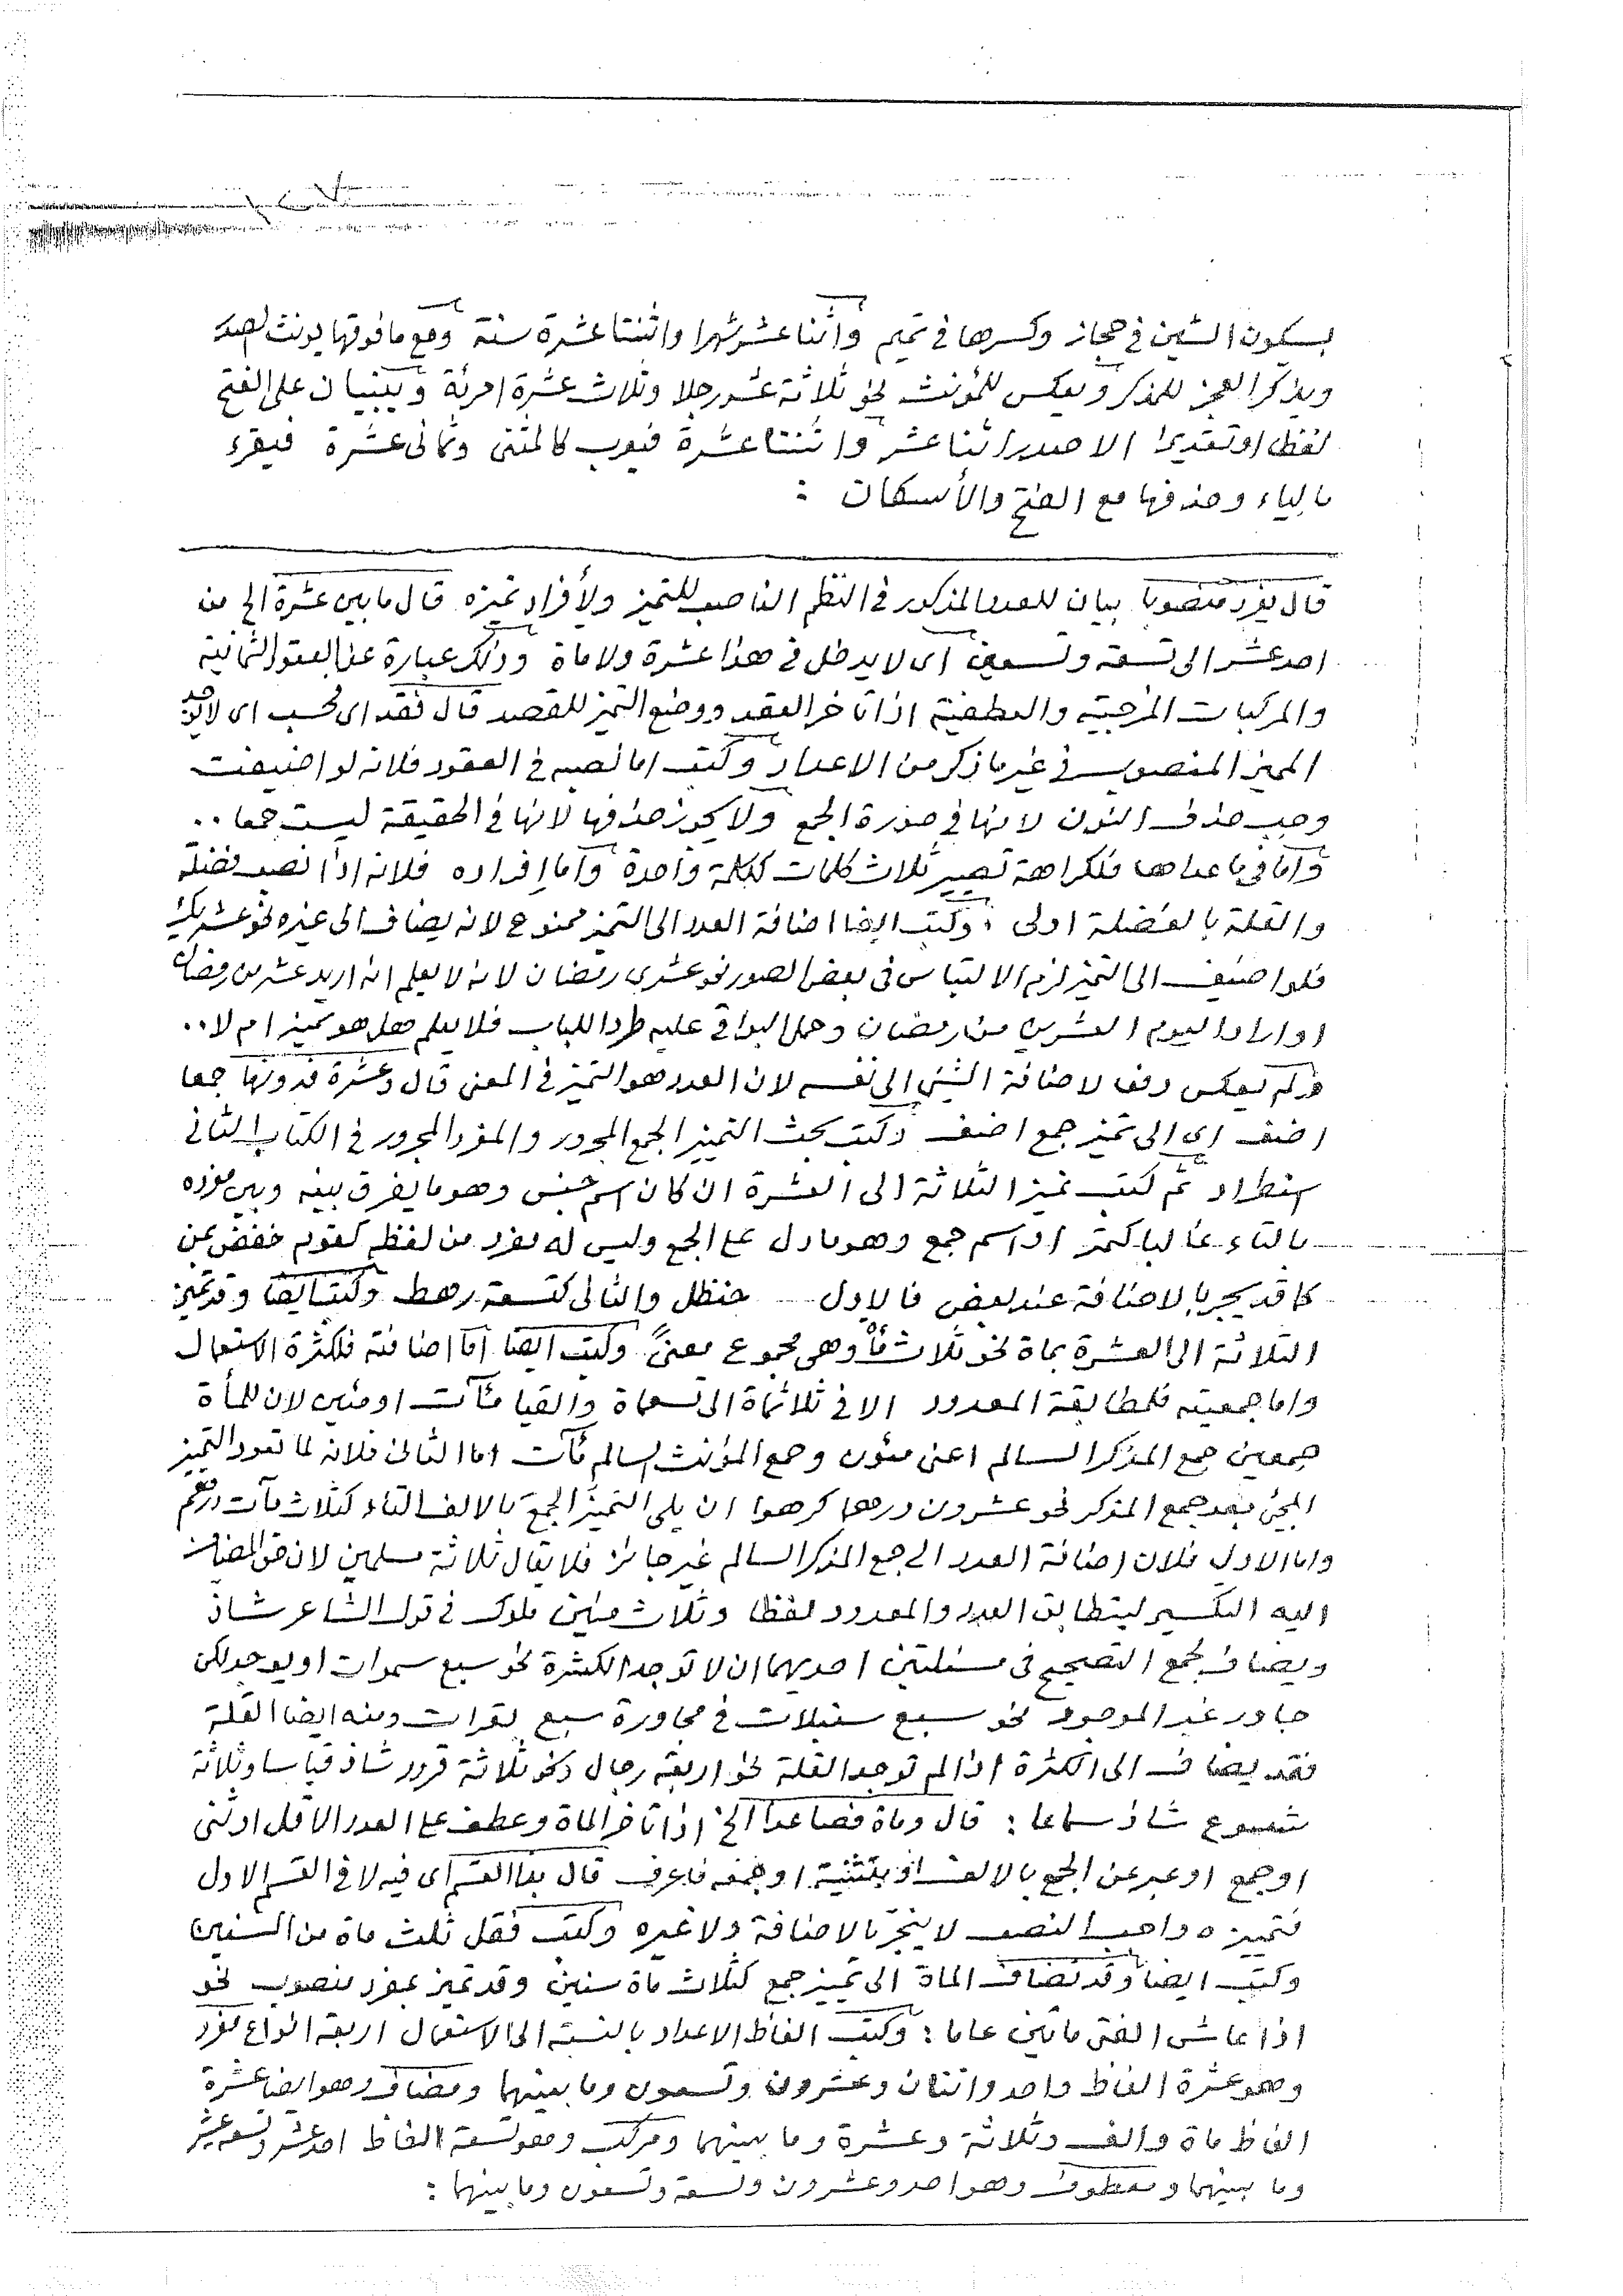 بسكون الشين في حجاز وكسرها في تميم واثنا عشر شهرا واثنتا عشرة سنة ومع ما فوقها يونث الصدر
ويذكر العجز للمذكر ويعكس للمؤنث نحو ثلاثة عشر رجلا وثلاث عشرة امرئة ويبنيان على الفتح
لفظا او تقديرا الا صدر اثنا عشر واثنتا عشرة فيعرب كالمثنى وثمانى عشرة فيقرء
بالياء وحذفها مع الفتح والأسكان :
قال يفرد منصوبا بيان للعدد المذكور في النظم الناصب للتميز ولأفراد تميزه قال ما بين عشرة الخ من
احد عشر الى تسعة وتسعين اى لا يدخل في هذا عشرة ولا ماة وذلك عبارة عن العقود الثمانية
والمركبات المزجية والعطفية اذا تأخر العقد ووضع التميز للقصد قال فقد اى فحسب اى لا يوجد
المميز المنصوب في غير ما ذكر من الاعداد وكتب اما نصبه في العقود فلانه لو اضيفت
وجب حذف النون لانها في صورة الجمع ولا يجوز حذفها لانها في الحقيقة ليست جمعا ..
وأما في ما عداها فلكراهة تصيير ثلاث كلمات ككلمة واحدة وأما إفراده فلانه اذا نصب فضلة
والقلة بالفضلة اولى ، وكتب ايضا اضافة العدد الى التميز ممنوع لانه يضاف الى غيره نحو عشريك
فلو اضيف الى التميز لزم الالتباس في بعض الصور نحو عشرى رمضان لانه لا يعلم انه اريد عشرين رمضان
او اراد اليوم العشرين من رمضان وحمل البواقى عليه طردا للباب فلا يعلم هل هو تميز ام لا ..
ولم يعكس دفعا لاضافة الشيئ الى نفسه لان العدد هو التميز في المعنى قال وعشرة فدونها جمعا
اضف اى الى تميز جمع اضف وكتب بحث التمييز الجمع المجرور والمفرد المجرور في الكتاب الثانى
استطراد ثم كتب تميز الثلاثة الى العشرة ان كان اسم جنس وهو ما يفرق بينه وبين مفرده
بالتاء غالبا كتمر او اسم جمع وهو ما دل على الجمع وليس له مفرد من لفظه كقوم خفض بمن
كما قد يجر بالاضافة عند بعض فالاول حنظل والثانى كتسعة رهط وكتب ايضا وقد تميز
الثلاثة الى العشرة بماة نحو ثلاثمأة وهى مجموع معنىً وكتب ايضا أما اضافته فلكثرة الاستعمال
واما جمعيته فلمطابقة المعدود الا في ثلاثماة الى تسعماة والقيا مئآت او مئين لان للمأة
جمعين جمع المذكر السالم اعنى مئون وجمع المؤنث السالم مئآت اما الثانى فلانه لما تعود التميز
المجيئ بعد جمع المذكر نحو عشرون درهما كرهوا ان يلى التميز الجمع بالالف التاء كثلاث مآت درهم
واما الاول فلان اضافة العدد الى جمع المذكر السالم غير جائز فلا يقال ثلاثة مسلمين لان حق المضاف
اليه التكسير ليتطابق العدد والمعدود لفظا وثلاث مئين ملوك في قول الشاعر شاذ
ويضاف لجمع التصحيح في مسئلتين احديهما ان لا توجد الكثرة نحو سبع سموات او يوجد لكن
جاور غير الموجود نحو سبع سنبلات في مجاورة سبع بقرات ومنه ايضا القلة
فقد يضاف الى الكثرة اذا لم توجد القلة نحو اربعة رجال ونحو ثلاثة قرود شاذ قياسا وثلاثة
شسوع شاذ سماعا : قال وماة فصاعدا الخ اذا تأخر الماة وعطف على العدد الاقل او ثنى
او جمع او عبر عن الجمع بالالف او بتثنية او جمعه فاعرف قال بذا القسم اى فيه لا في القسم الاول
فتمييزه واجب النصب لا ينجر بالاضافة ولا غيره وكتب فقل ثلث ماة من السنين
وكتب ايضا وقد تضاف الماة الى تمييز جمع كثلاث ماة سنين وقد تميز بمفرد منصوب نحو
اذا عاش الفتى مأتين عاما : وكتب الفاظ الاعداد بالنسبة الى الاستعمال اربعة انواع مفرد
وهو عشرة الفاظ واحد واثنان وعشرون وتسعون وما بينهما ومضاف وهو ايضا عشرة
الفاظ ماة والف وثلاثة وعشرة وما بينهما ومركب وهو تسعة الفاظ احد عشر وتسعة عشر
وما بينهما ومعطوف وهو احد وعشرون وتسعة وتسعون وما بينهما :